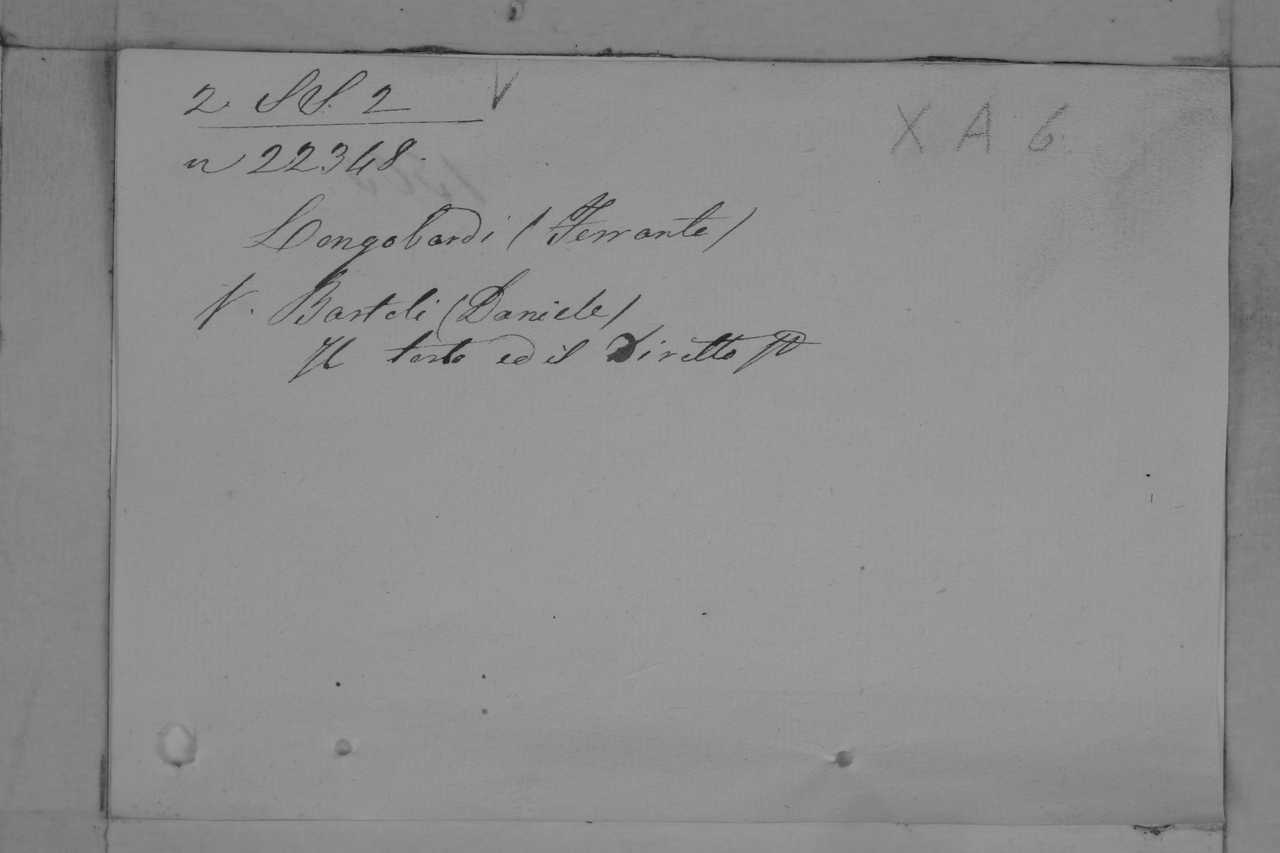 2 SS. 2 V
X A 6
n 22348.
Longobardi (Ferrante)
V. Bartoli (Daniele)
Il torto ed il Diritto